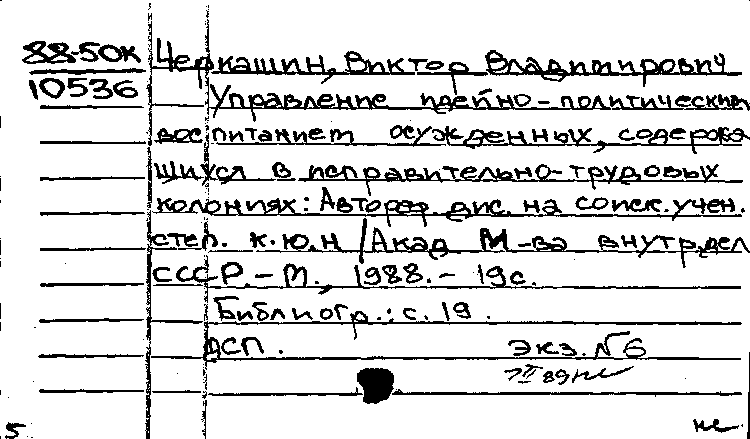 88-50к
10536
Черкашин, Виктор Владимирович
Управление идейно-политическим
воспитанием осужденных, содержа
щихся в исправительно-трудовых
колониях: Автореф. дис. на соиск. учен.
степ. к.ю.н / Акад М-ва внутр. дел
СССР. - М., 1988. - 19 с.
Библиогр.: с. 19.
ДСП. Экз. №6
5